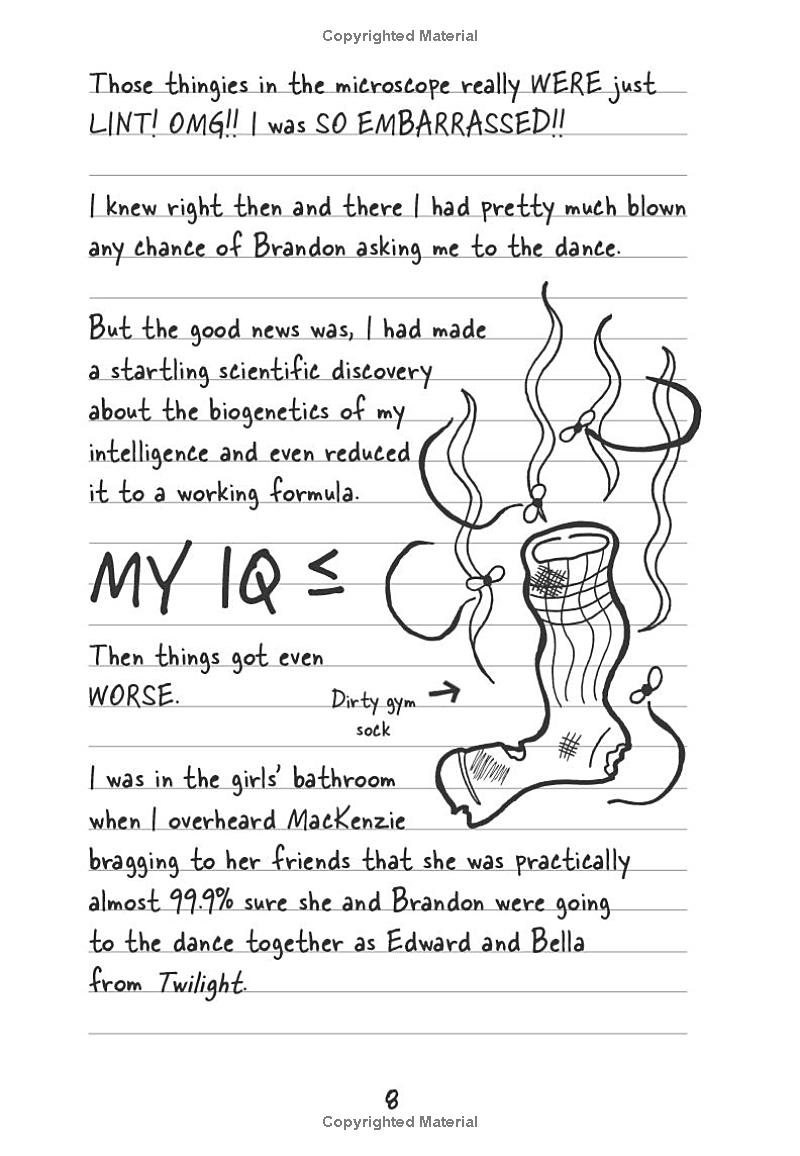 Copyrighted Material
Those thingies in the microscope really WERE just
LINT! OMG!! I was SO EMBARRASSED!!
I knew right then and there I had pretty much blown
any chance of Brandon asking me to the dance.
But the good news was, I had made
a startling scientific discovery
about the biogenetics of my
intelligence and even reduced
it to a working formula.
MY IQ ≤
Then things got even
WORSE.
Dirty gym
sock
I was in the girls' bathroom
when I overheard MacKenzie
bragging to her friends that she was practically
almost 99.9% sure she and Brandon were going
to the dance together as Edward and Bella
from Twilight.
8
Copyrighted Material